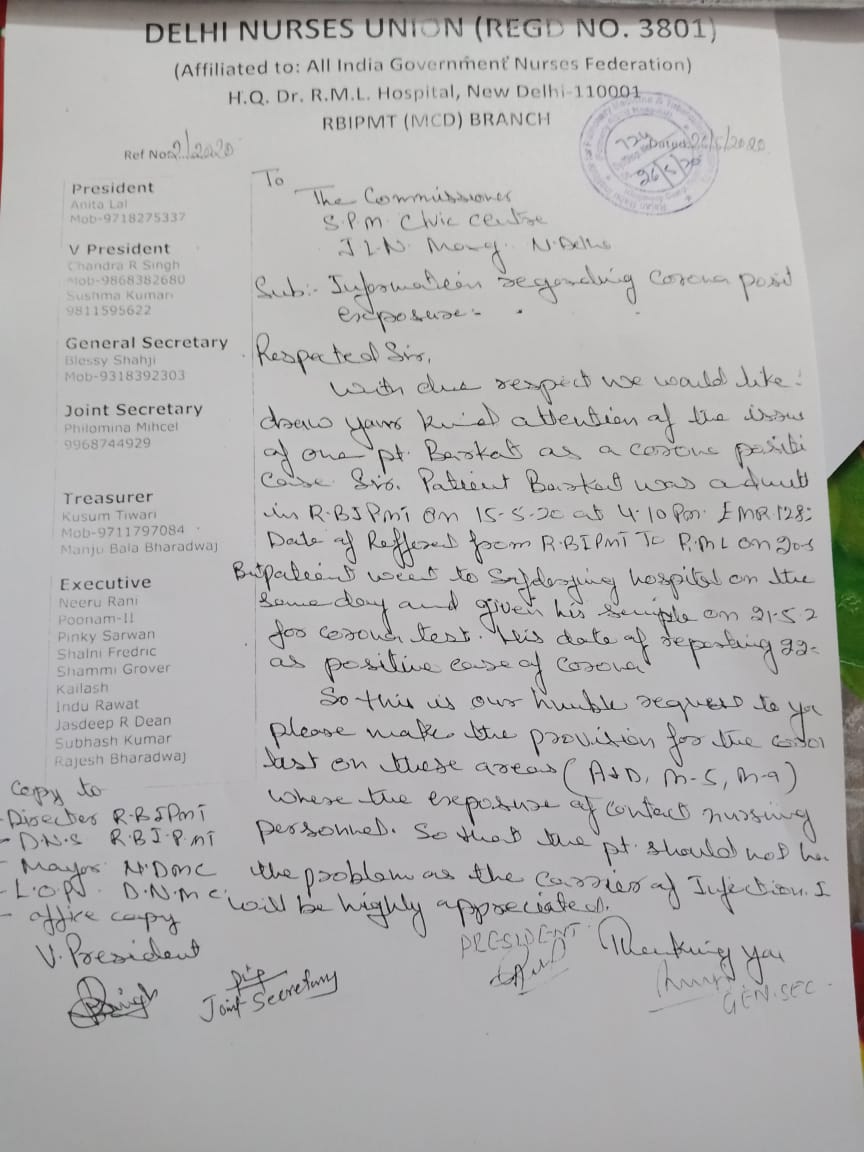 DELHI NURSES UNION (REGD NO. 3801)
(Affiliated to: All India Government Nurses Federation)
H.Q. Dr. R.M.L. Hospital, New Delhi-110001
RBIPMT (MCD) BRANCH
Ref No: 2/2020
Dated: 26/5/2020
724
26/5/20
President
Anita Lal
Mob-9718275337
V President
Chandra R Singh
Mob-9868382680
Sushma Kumari
9811595622
General Secretary
Blessy Shahji
Mob-9318392303
Joint Secretary
Philomina Mihcel
9968744929
Treasurer
Kusum Tiwari
Mob-9711797084
Manju Bala Bharadwaj
Executive
Neeru Rani
Poonam-II
Pinky Sarwan
Shalni Fredric
Shammi Grover
Kailash
Indu Rawat
Jasdeep R Dean
Subhash Kumar
Rajesh Bharadwaj
To
The Commissioner
S.P.M. Civic Centre
J.L.N. Marg. N.Delhi
Sub:- Information regarding corona posit
exposure.
Respected Sir,
With due respect we would like
draw your kind attention of the issue
of one pt. Barkat as a corona positi
case. Sir. Patient Barkat was admit
in R.B.I.P.M.T on 15-5-20 at 4.10 Pm. EMR.128
Date of Reffered from R.B.I.P.M.T To R.M.L on 20-5
But patient went to Safdarjung hospital on the
same day and given his semple on 21-5-2
for corona test. His date of reporting 22-
as positive case of corona
So this is our humble request to yo
please make the provision for the coro
test on these areas (A&D, M-5, M-9)
where the exposure of contact nursing
personnel. So that the pt. should not ha
the problem as the carrier of Infection. I
will be highly appreciated.
Thanking you
Copy to
- Director R.B.I.P.M.T
- D.N.S R.B.I.P.M.T
- Mayor N.D.M.C
- L.O.P. D.N.M.C.
- office copy
V. President
Joint Secretary
PRESIDENT
GEN. SEC.